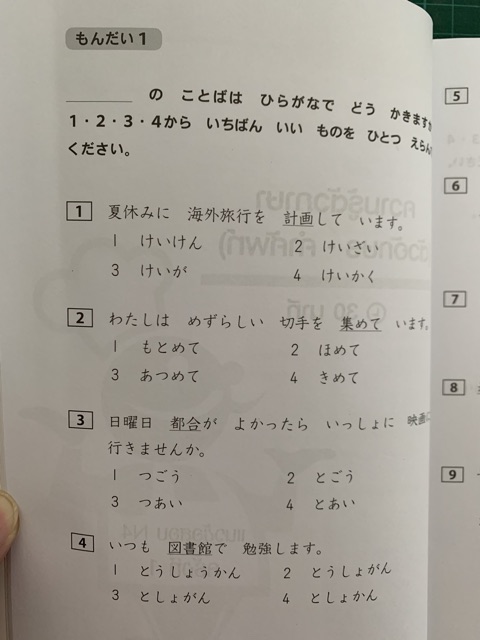 もんだい1
＿＿＿ の ことばは ひらがなで どう かきますか
1・2・3・4から いちばん いい ものを ひとつ えらん
ください。
1 夏休みに 海外旅行を 計画して います。
1 けいけん 2 けいざい
3 けいが 4 けいかく
2 わたしは めずらしい 切手を 集めて います。
1 もとめて 2 ほめて
3 あつめて 4 きめて
3 日曜日 都合が よかったら いっしょに 映画に
行きませんか。
1 つごう 2 とごう
3 つあい 4 とあい
4 いつも 図書館で 勉強します。
1 とうしょうかん 2 とうしょがん
3 としょがん 4 としょかん
5
6
7
8
9